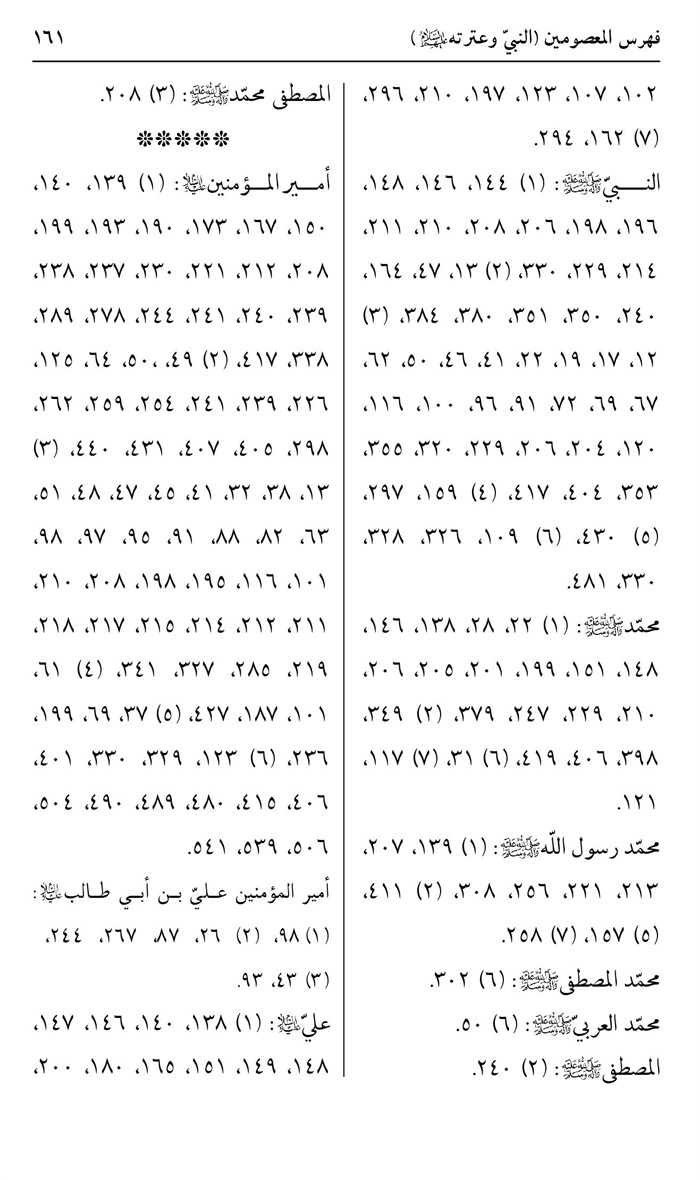 فهرس المعصومين (النبيّ وعترته عليهم السلام)
١٦١
١٠٢، ١٠٧، ١٢٣، ١٩٧، ٢١٠، ٢٩٦،
(٧) ١٦٢، ٢٩٤.
النــــبيّ ﷺ: (١) ١٤٤، ١٤٦، ١٤٨،
١٩٦، ١٩٨، ٢٠٦، ٢٠٨، ٢١٠، ٢١١،
٢١٤، ٢٢٩، ٣٣٠، (٢) ١٣، ٤٧، ١٦٤،
٢٤٠، ٣٥٠، ٣٥١، ٣٨٠، ٣٨٤، (٣)
١٢، ١٧، ١٩، ٢٢، ٤١، ٤٦، ٥٠، ٦٢،
٦٧، ٦٩، ٧٢، ٩١، ٩٦، ١٠٠، ١١٦،
١٢٠، ٢٠٤، ٢٠٦، ٢٢٩، ٣٢٠، ٣٥٥،
٣٥٣، ٤٠٤، ٤١٧، (٤) ١٥٩، ٢٩٧،
(٥) ٤٣٠، (٦) ١٠٩، ٣٢٦، ٣٢٨،
٣٣٠، ٤٨١.
محمّد ﷺ: (١) ٢٢، ٢٨، ١٣٨، ١٤٦،
١٤٨، ١٥١، ١٩٩، ٢٠١، ٢٠٥، ٢٠٦،
٢١٠، ٢٢٩، ٢٤٧، ٣٧٩، (٢) ٣٤٩،
٣٩٨، ٤٠٦، ٤١٩، (٦) ٣١، (٧) ١١٧،
١٢١.
محمّد رسول اللّه ﷺ: (١) ١٣٩، ٢٠٧،
٢١٣، ٢٢١، ٢٥٦، ٣٠٨، (٢) ٤١١،
(٥) ١٥٧، (٧) ٢٥٨.
محمّد المصطفى ﷺ: (٦) ٣٠٢.
محمّد العربيّ ﷺ: (٦) ٥٠.
المصطفى ﷺ: (٢) ٢٤٠.
المصطفى محمّد ﷺ: (٣) ٢٠٨.
*****
أمـــير المـــؤمنين عليه السلام: (١) ١٣٩، ١٤٠،
١٥٠، ١٦٧، ١٧٣، ١٩٠، ١٩٣، ١٩٩،
٢٠٨، ٢١٢، ٢٢١، ٢٣٠، ٢٣٧، ٢٣٨،
٢٣٩، ٢٤٠، ٢٤١، ٢٤٤، ٢٧٨، ٢٨٩،
٣٣٨، ٤١٧، (٢) ٤٩، ٥٠،، ٦٤، ١٢٥،
٢٢٦، ٢٣٩، ٢٤١، ٢٥٤، ٢٥٩، ٢٦٢،
٢٩٨، ٤٠٥، ٤٠٧، ٤٣١، ٤٤٠، (٣)
١٣، ٣٨، ٣٢، ٤١، ٤٥، ٤٧، ٤٨، ٥١،
٦٣، ٨٢، ٨٨، ٩١، ٩٥، ٩٧، ٩٨،
١٠١، ١١٦، ١٩٥، ١٩٨، ٢٠٨، ٢١٠،
٢١١، ٢١٢، ٢١٤، ٢١٥، ٢١٧، ٢١٨،
٢١٩، ٢٨٥، ٣٢٧، ٣٤١، (٤) ٦١،
١٠١، ١٨٧، ٤٢٧، (٥) ٣٧، ٦٩، ١٩٩،
٢٣٦، (٦) ١٢٣، ٣٢٩، ٣٣٠، ٤٠١،
٤٠٦، ٤١٥، ٤٨٠، ٤٨٩، ٤٩٠، ٥٠٤،
٥٠٦، ٥٣٩، ٥٤١.
أمير المؤمنين عليّ بـن أبـي طـالب عليه السلام:
(١) ٩٨، (٢) ٢٦، ٨٧، ٢٦٧، ٢٤٤،
(٣) ٤٣، ٩٣.
عليّ عليه السلام: (١) ١٣٨، ١٤٠، ١٤٦، ١٤٧،
١٤٨، ١٤٩، ١٥١، ١٦٥، ١٨٠، ٢٠٠،